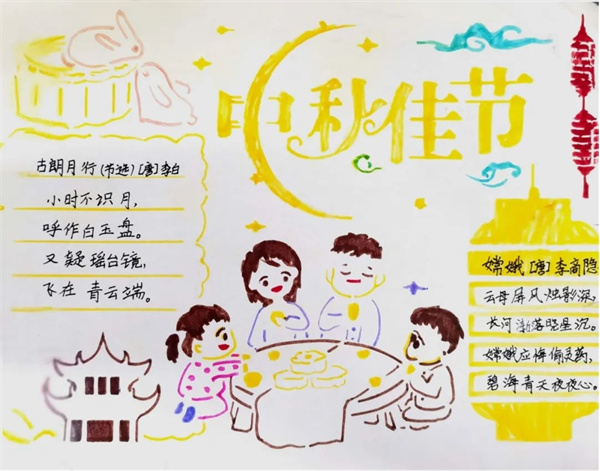 中秋佳节
古朗月行(节选)[唐]李白
小时不识月,
呼作白玉盘。
又疑瑶台镜,
飞在 青云端。
嫦娥[唐]李商隐
云母屏风烛影深,
长河渐落晓星沉。
嫦娥应悔偷灵药,
碧海青天夜夜心。